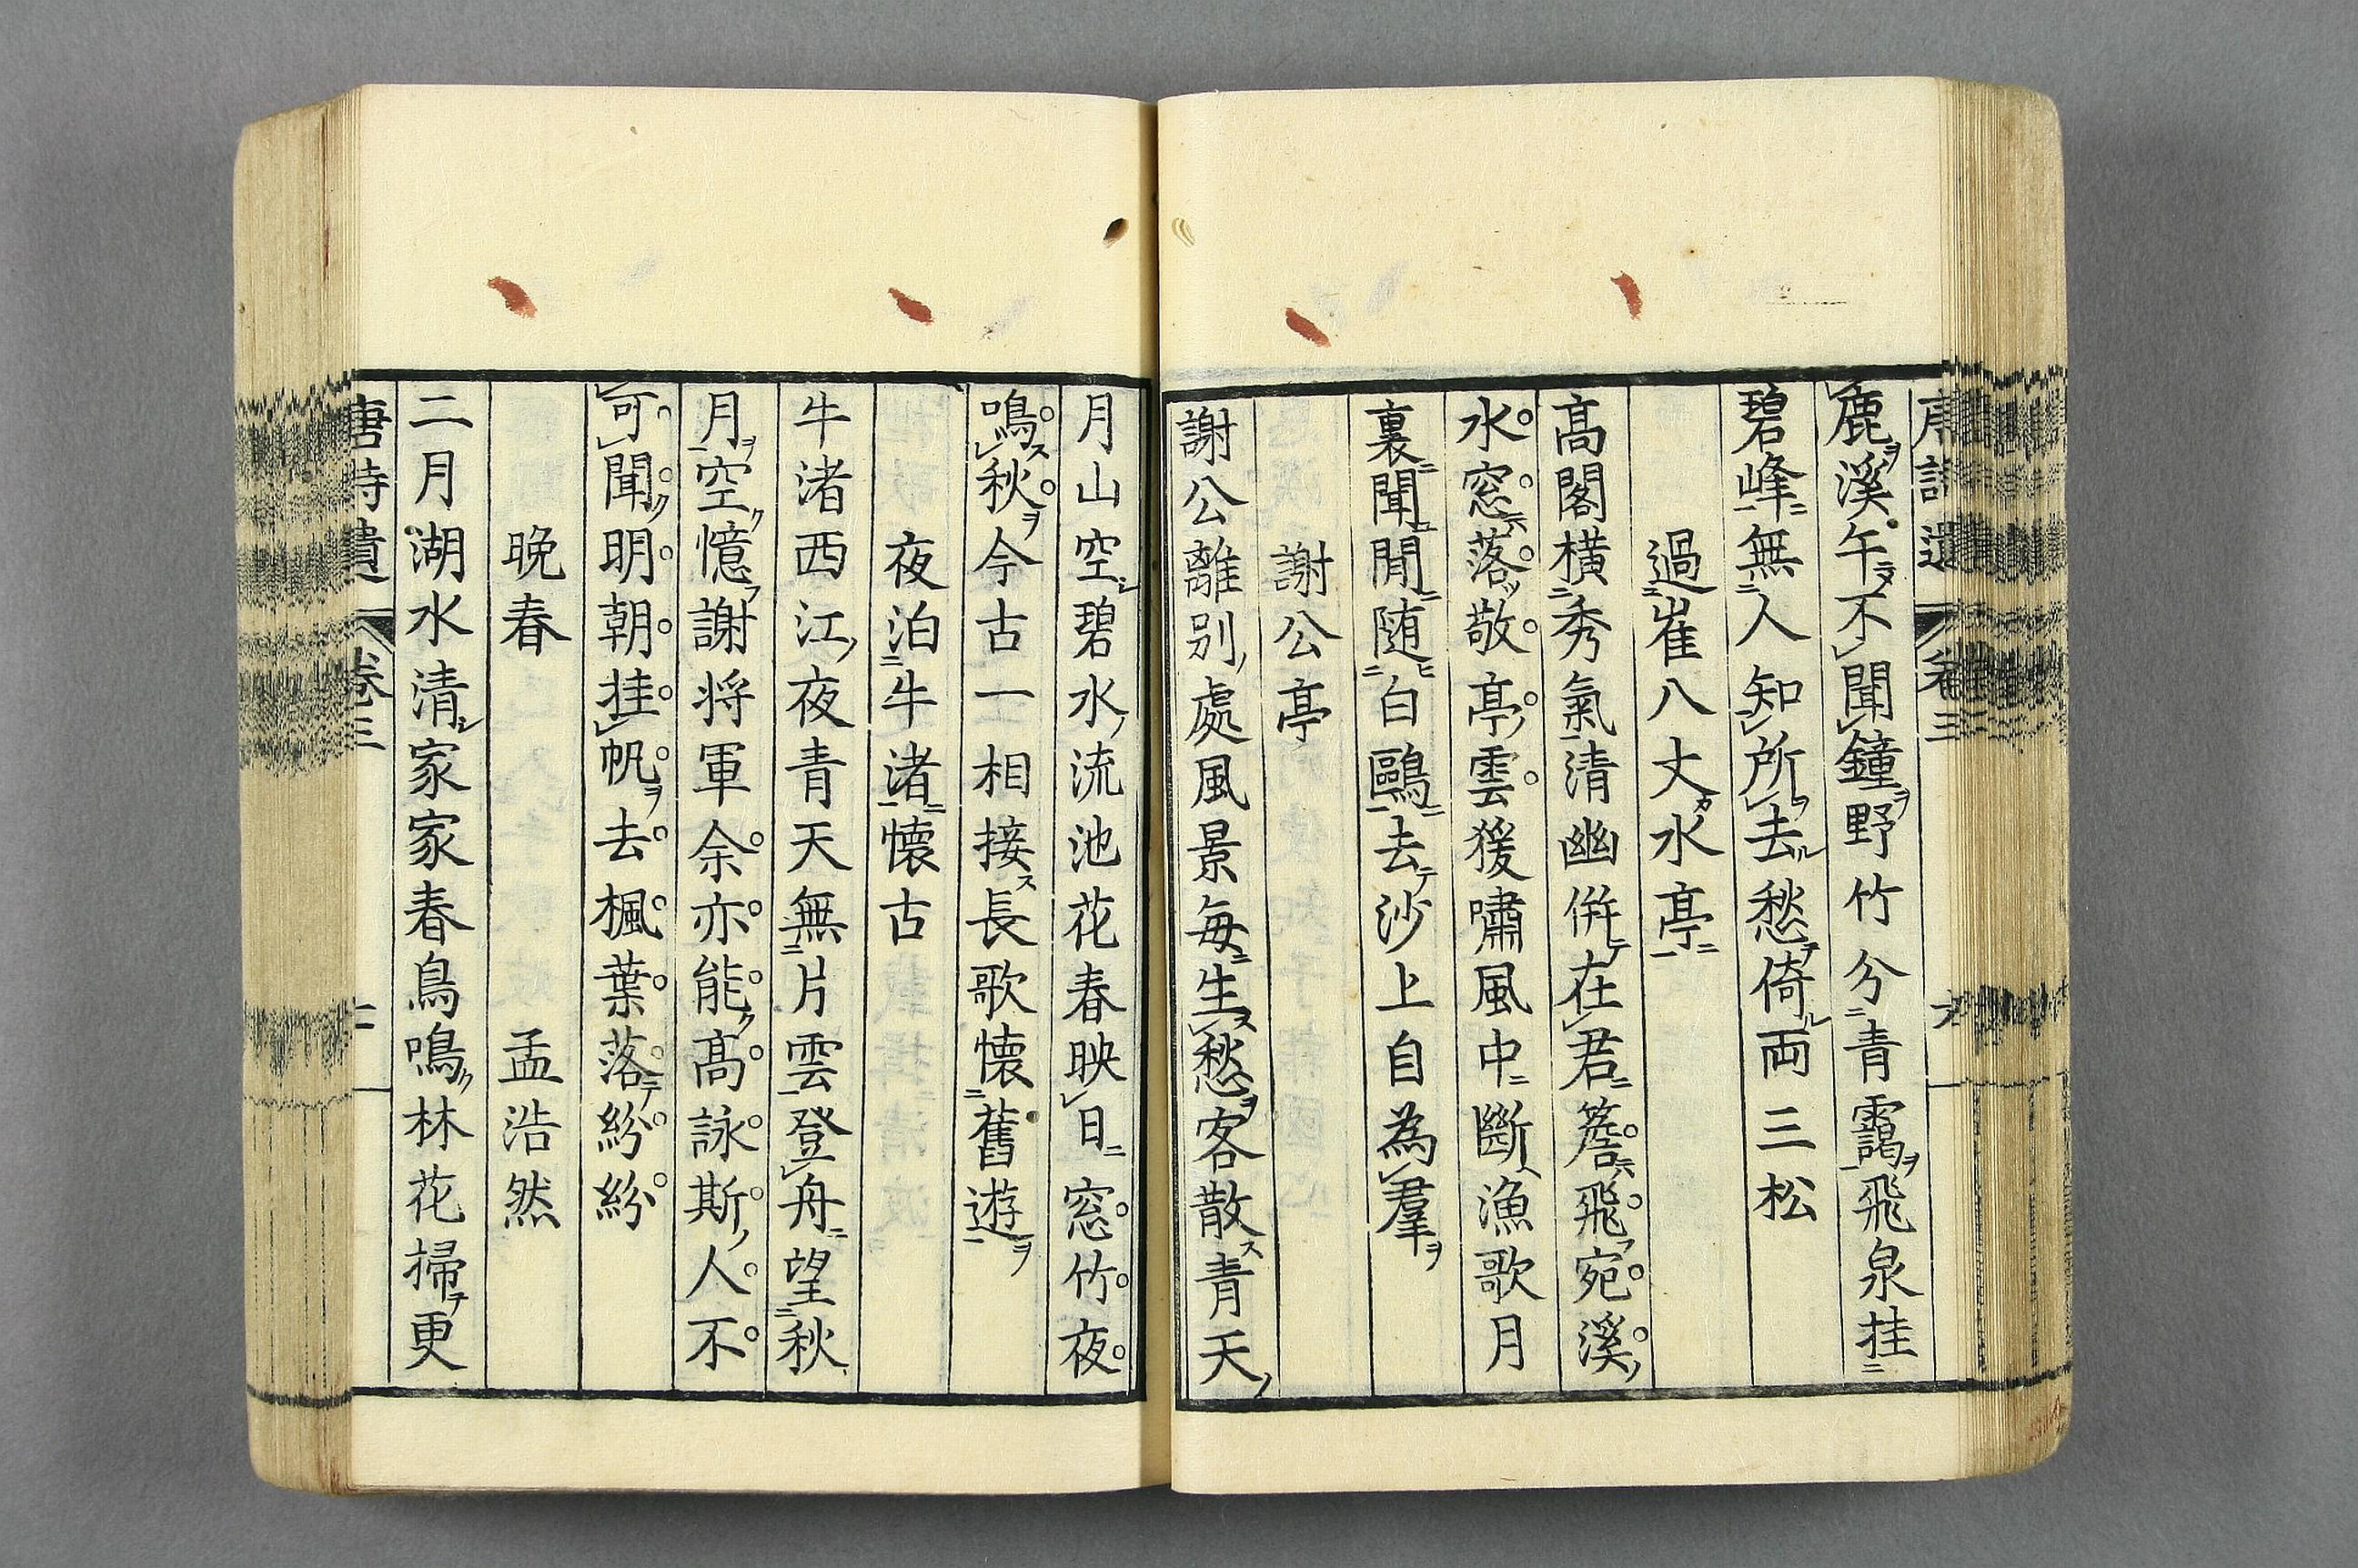 鹿溪午不聞鐘野竹分青靄飛泉挂
碧峰無人知所去愁倚両三松
過崔八丈水亭
高閣橫秀氣清幽併在君簷飛宛溪
水窓落敬亭雲猨嘯風中斷漁歌月
裏聞閒随白鷗去沙上自為羣
謝公亭
謝公離别處風景每生愁客散青天
月山空碧水流池花春映日窓竹夜
鳴秋今古一相接長歌懷舊遊
夜泊牛渚懷古
牛渚西江夜青天無片雲登舟望秋
月空憶謝将軍余亦能高詠斯人不
可聞明朝挂帆去楓葉落紛紛
晚春 孟浩然
二月湖水清家家春鳥鳴林花掃更
唐詩遺 卷三